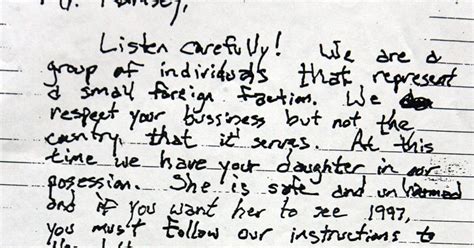 Ramsey,
Listen carefully! We are a
group of individuals that represent
a small foreign faction. We
respect your bussiness but not the
country that it serves. At this
time we have your daughter in our
posession. She is safe and unharmed
and if you want her to see 1997,
you must follow our instructions to